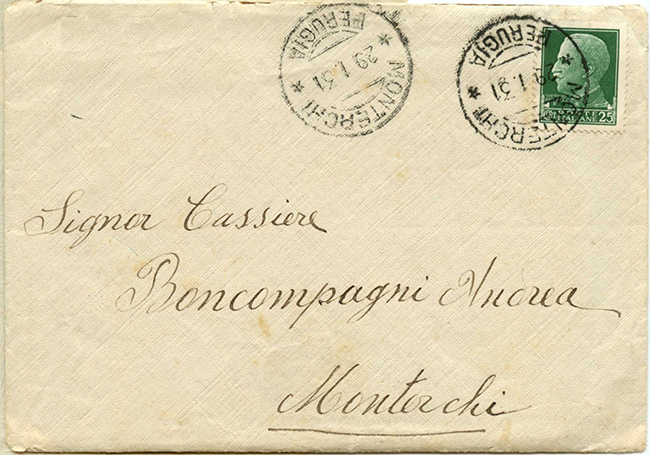 PERUGIA
* 29.1.31 *
MONTERCHI
PERUGIA
* 29.1.31 *
MONTERCHI
25
Signor Cassiere
Boncompagni Andrea
Monterchi